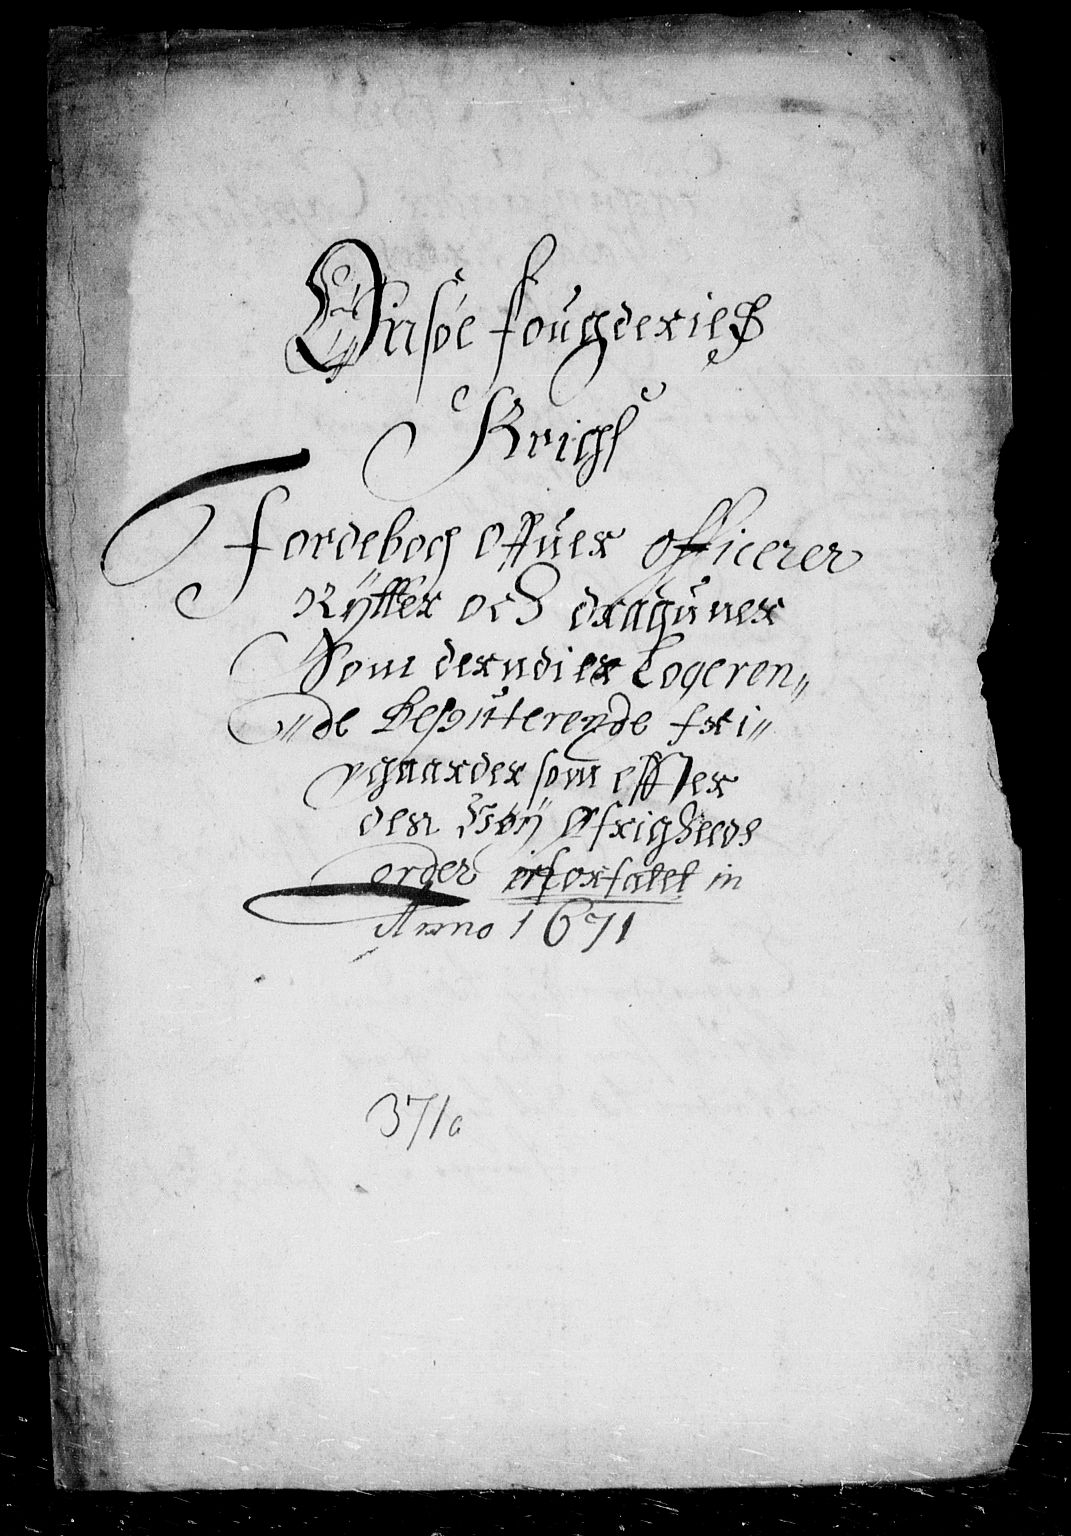 Onsøe fougderies
Krigs
Jordebog offuer officerer
Rytter och draguner
Som derudi er Logeren//
//de Resputerende fri//
gaarder som effter
den Høy Øfrigheeds
order erfortalt in
Anno 1671
371a